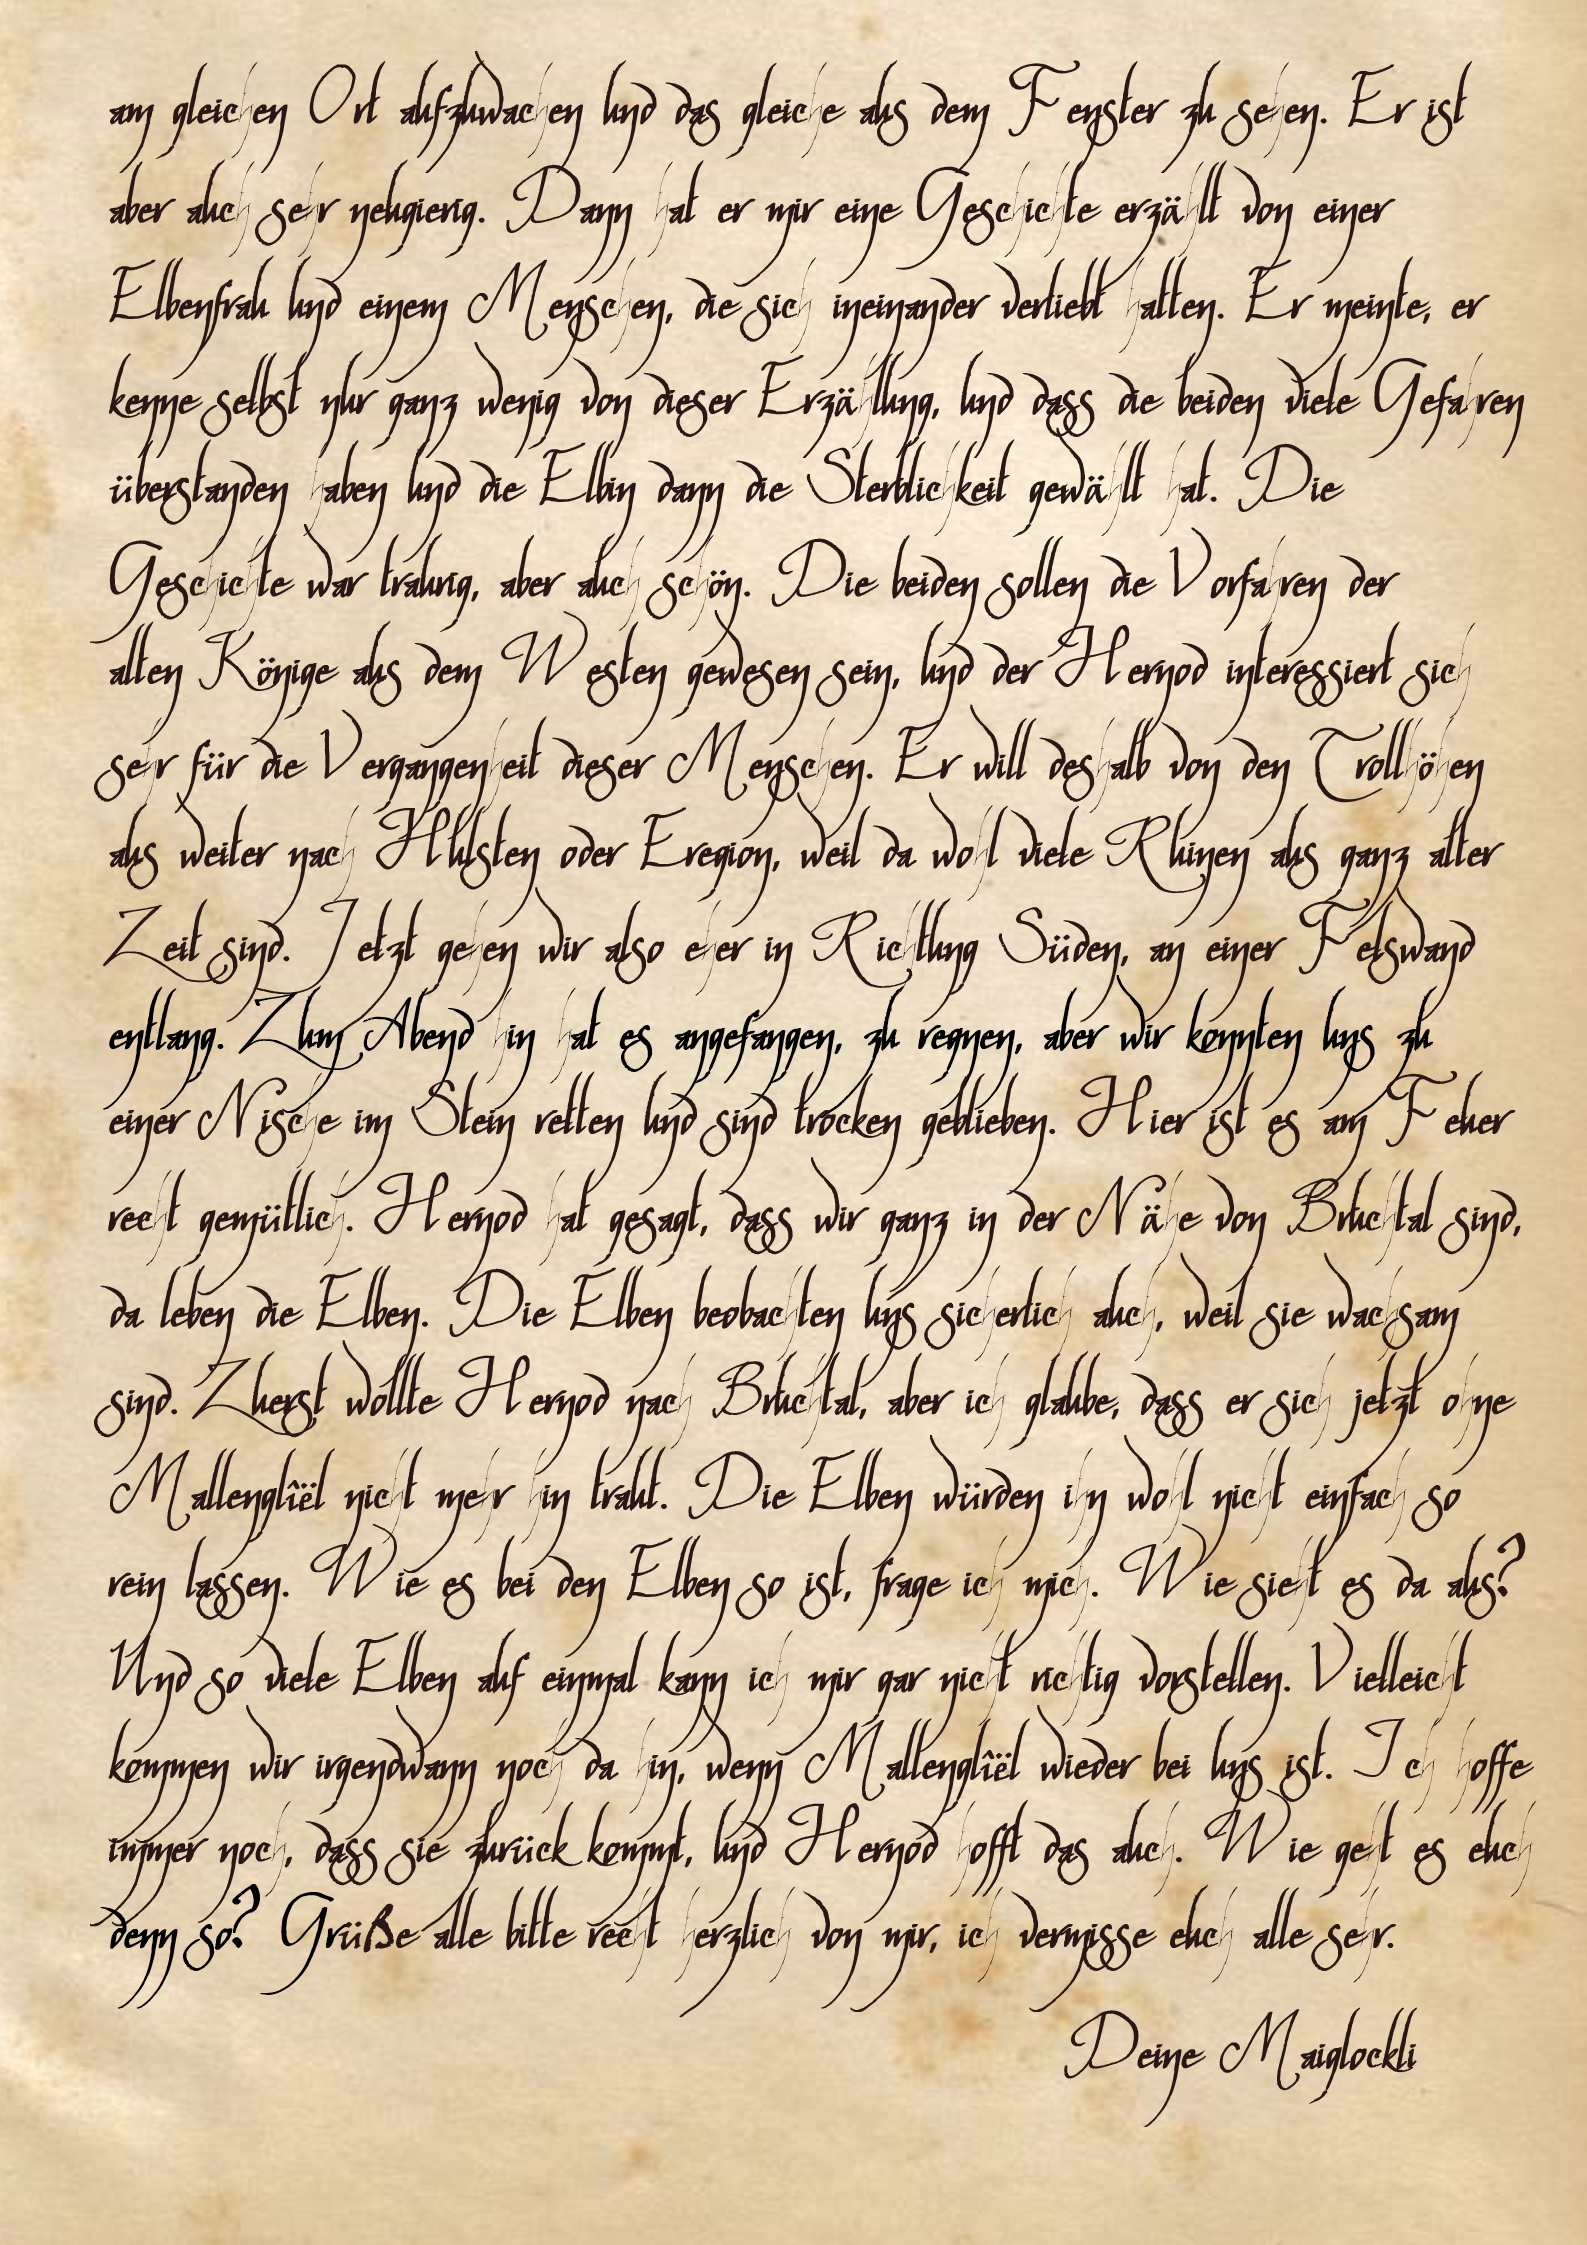 am gleichen Ort aufzuwachen und das gleiche aus dem Fenster zu sehen. Er ist
aber auch sehr neugierig. Dann hat er mir eine Geschichte erzählt von einer
Elbenfrau und einem Menschen, die sich ineinander verliebt hatten. Er meinte, er
kenne selbst nur ganz wenig von dieser Erzählung, und dass die beiden viele Gefahren
überstanden haben und die Elbin dann die Sterblichkeit gewählt hat. Die
Geschichte war traurig, aber auch schön. Die beiden sollen die Vorfahren der
alten Könige aus dem Westen gewesen sein, und der Hernod interessiert sich
sehr für die Vergangenheit dieser Menschen. Er will deshalb von den Trollhöhen
aus weiter nach Hulsten oder Eregion, weil da wohl viele Ruinen aus ganz alter
Zeit sind. Jetzt gehen wir also eher in Richtung Süden, an einer Felswand
entlang. Zum Abend hin hat es angefangen, zu regnen, aber wir konnten uns zu
einer Nische im Stein retten und sind trocken geblieben. Hier ist es am Feuer
recht gemütlich. Hernod hat gesagt, dass wir ganz in der Nähe von Bruchtal sind,
da leben die Elben. Die Elben beobachten uns sicherlich auch, weil sie wachsam
sind. Zuerst wollte Hernod nach Bruchtal, aber ich glaube, dass er sich jetzt ohne
Mallenglîël nicht mehr hin traut. Die Elben würden ihn wohl nicht einfach so
rein lassen. Wie es bei den Elben so ist, frage ich mich. Wie sieht es da aus?
Und so viele Elben auf einmal kann ich mir gar nicht richtig vorstellen. Vielleicht
kommen wir irgendwann noch da hin, wenn Mallenglîël wieder bei uns ist. Ich hoffe
immer noch, dass sie zurück kommt, und Hernod hofft das auch. Wie geht es euch
denn so? Grüße alle bitte recht herzlich von mir, ich vermisse euch alle sehr.
Deine Maiglockli